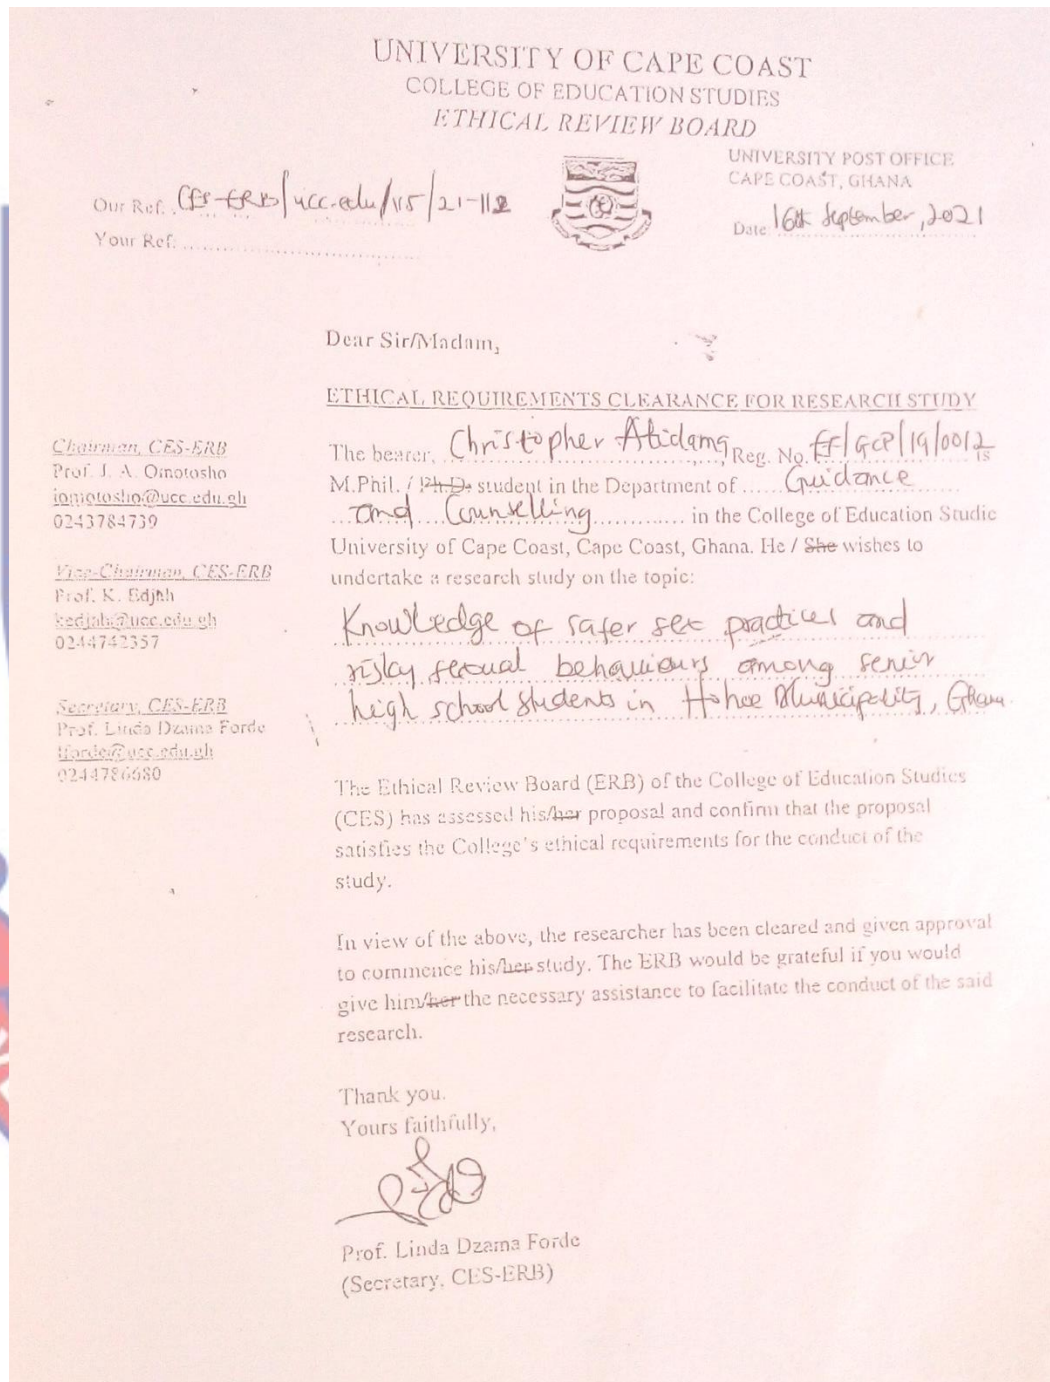 UNIVERSITY OF CAPE COAST
COLLEGE OF EDUCATION STUDIES
ETHICAL REVIEW BOARD
UNIVERSITY POST OFFICE
CAPE COAST, GHANA
Our Ref: CES-ERB/ucc.edu/V5/21-112
Date: 16th September, 2021
Your Ref:
Dear Sir/Madam,
ETHICAL REQUIREMENTS CLEARANCE FOR RESEARCH STUDY
Chairman, CES-ERB
Prof. J. A. Omotosho
jomotosho@ucc.edu.gh
0243784739
Vice-Chairman, CES-ERB
Prof. K. Edjah
kedjah@ucc.edu.gh
0244742357
Secretary, CES-ERB
Prof. Linda Dzama Forde
lforde@ucc.edu.gh
0244786680
The bearer, Christopher Reg. No. EF/GCP/19/0012
M.Phil. / Ph.D. student in the Department of Guidance
and Counselling in the College of Education Studie
University of Cape Coast, Cape Coast, Ghana. He / She wishes to
undertake a research study on the topic:
Knowledge of safer sex practices and
risky sexual behaviours among senior
high school students in Hohoe Municipality, Ghana.
The Ethical Review Board (ERB) of the College of Education Studies
(CES) has assessed his/her proposal and confirm that the proposal
satisfies the College's ethical requirements for the conduct of the
study.
In view of the above, the researcher has been cleared and given approval
to commence his/her study. The ERB would be grateful if you would
give him/her the necessary assistance to facilitate the conduct of the said
research.
Thank you.
Yours faithfully,
Prof. Linda Dzama Forde
(Secretary, CES-ERB)